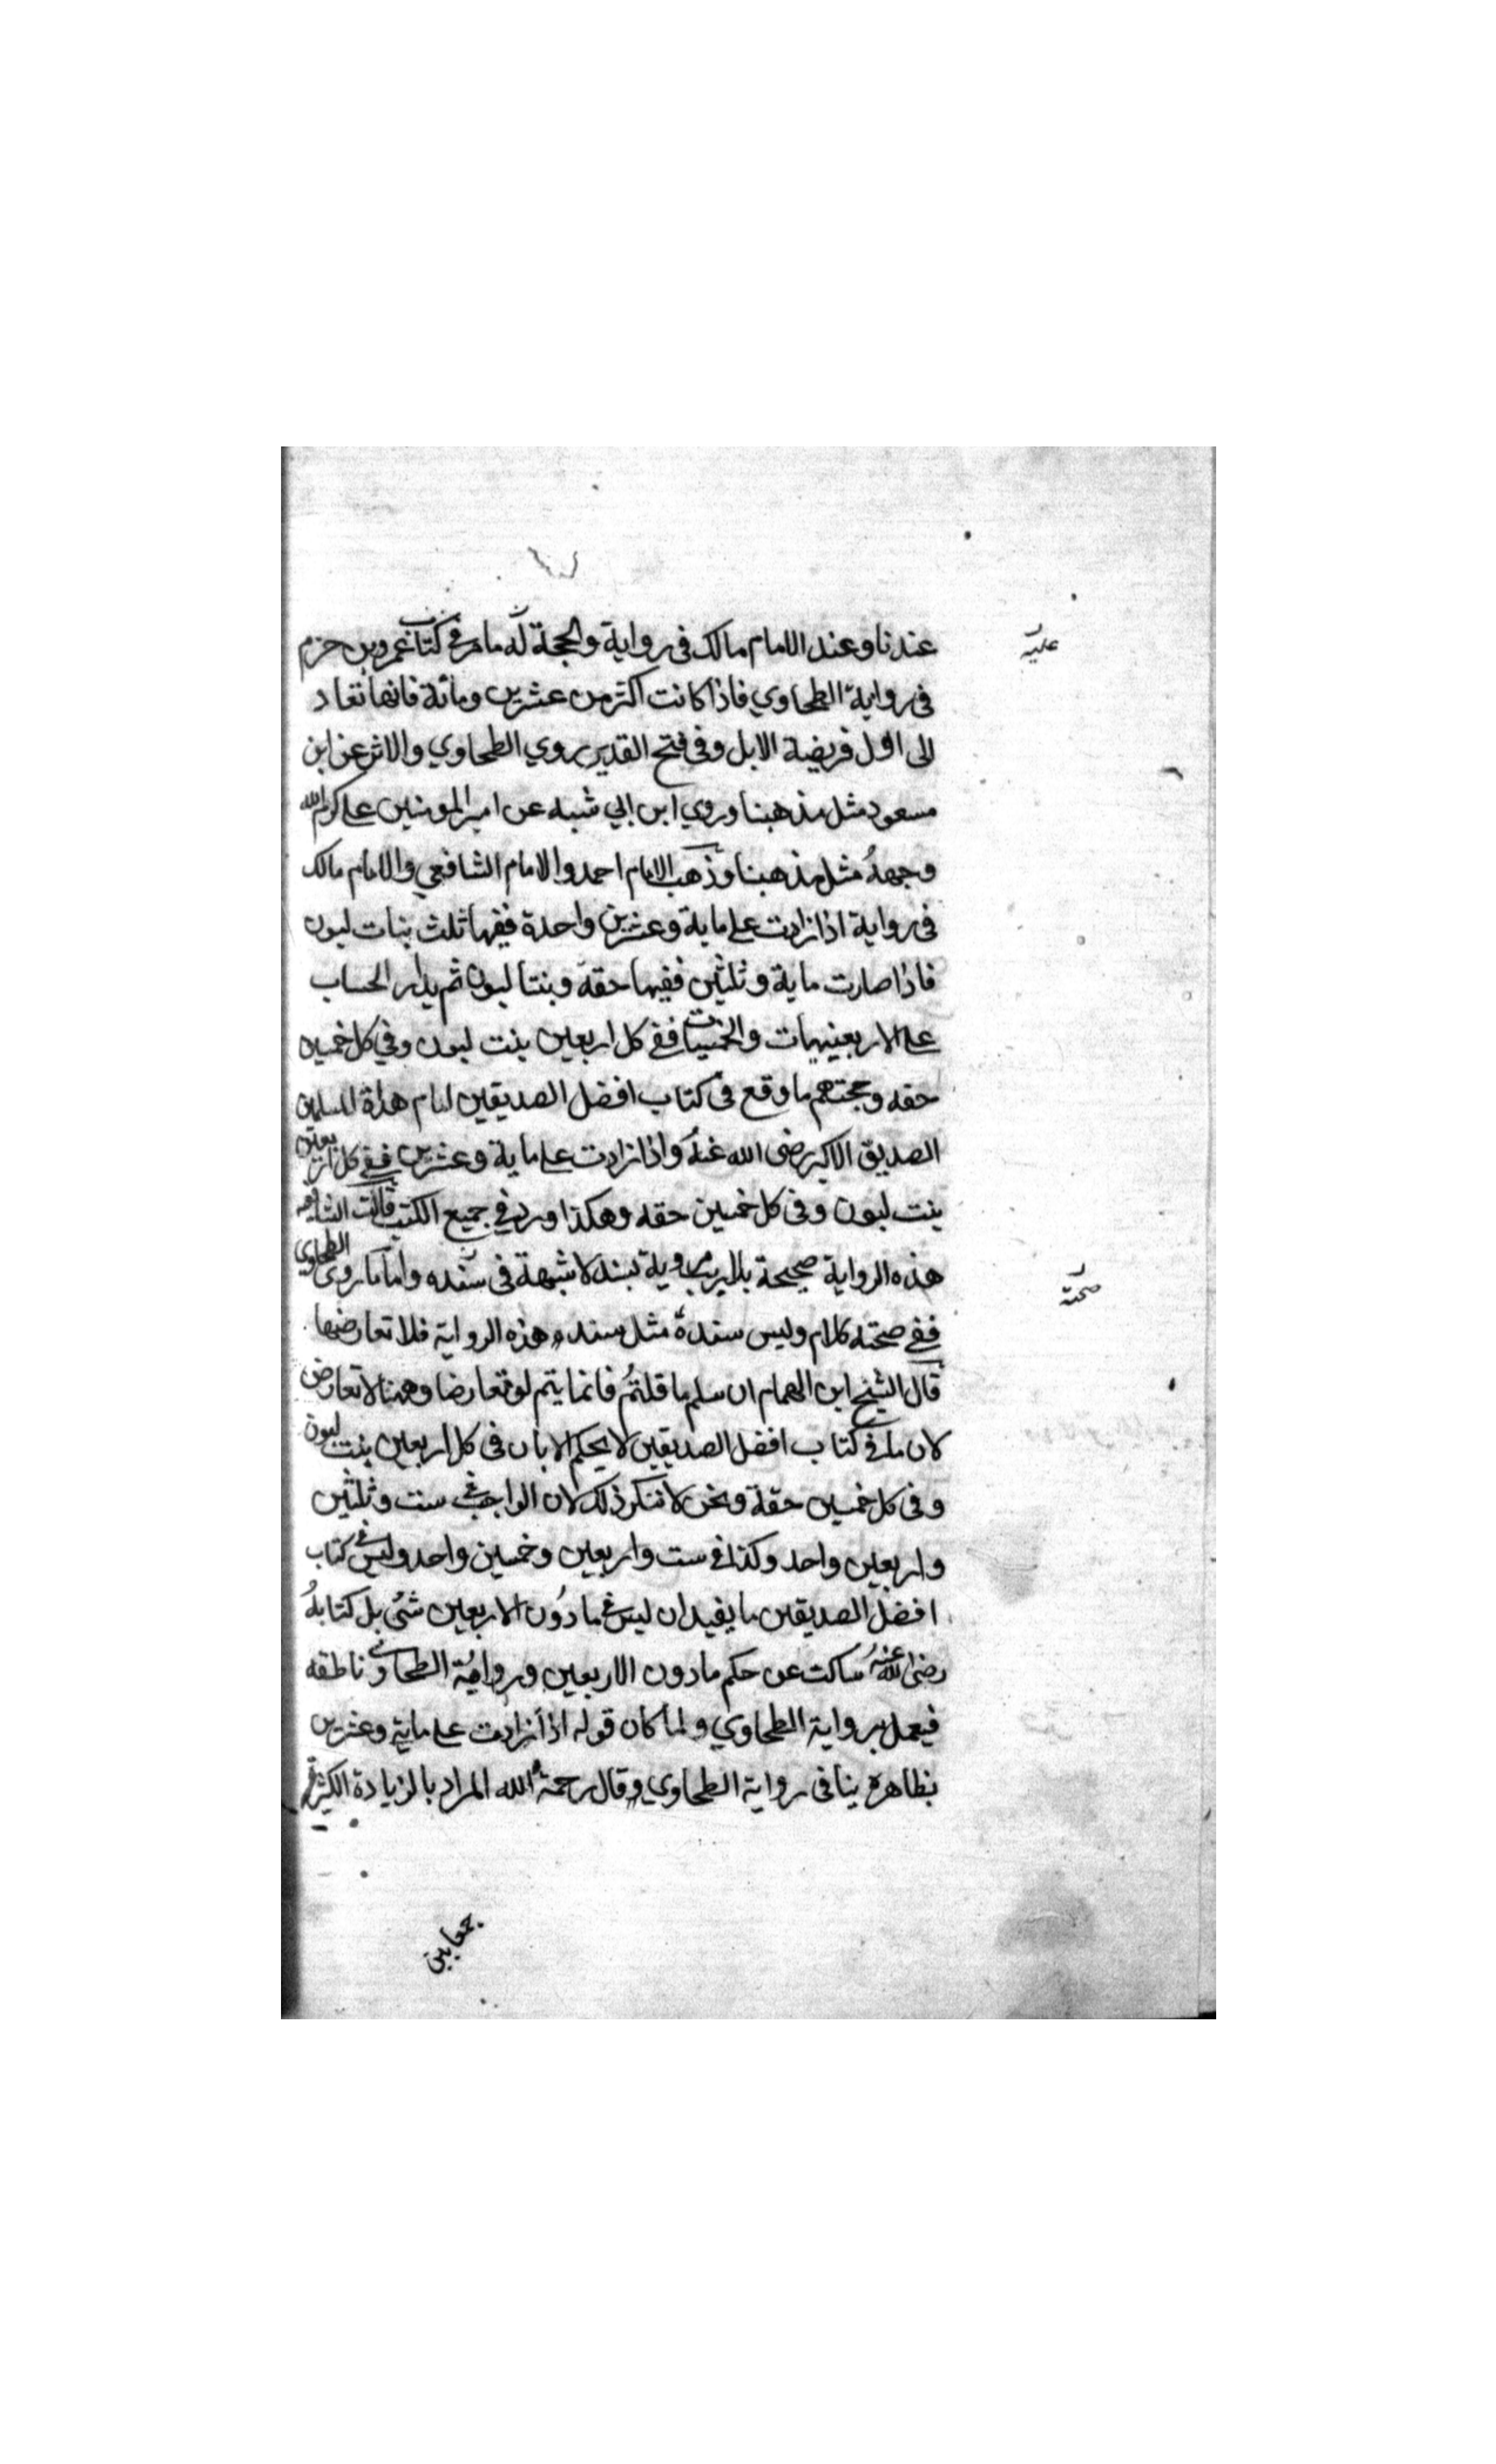 عندنا وعند الامام مالك في رواية والحجة له مامر في كتاب عمرو بن حزم
عليه
في رواية الطحاوي فاذا كانت اكثر من عشرين ومائة فانها تعاد
الى اول فريضة الابل وفي فتح القدير روي الطحاوي والاثر عن ابن
مسعود مثل مذهبنا وروي ابن ابي شبه عن امير المومنين على كرم الله
وجهه مثل مذهبنا وذهب الامام احمد والامام الشافعي والامام مالك
في رواية اذا زادت على ماية وعشرين واحدة ففيها ثلث بنات لبون
فاذا صارت ماية وثلثين ففيها حقة وبنتا لبون ثم يدار الحساب
على الاربعينيات والخمسينات ففي كل اربعين بنت لبون وفي كل خمسين
حقه وحجتهم ما وقع في كتاب افضل الصديقين امام هداة المسلمين
الصديق الاكبر رضى الله عنه واذا زادت على ماية وعشرين ففي كل اربعين
بنت لبون وفي كل خمسين حقه وهكذا ورد في جميع الكتب قالت الشافعيه
هذه الرواية صحيحة بلا ريب مروية بسند لا شبهة في سنده واما ما روى الطحاوي
صحته
ففي صحته كلام وليس سنده مثل سند هذه الرواية فلا تعارضها
قال الشيخ ابن الهمام ان سلم ما قلتم فانما يتم لو تعارضا وههنا لا تعارض
لان ما في كتاب افضل الصديقين لا يحكم الا بان في كل اربعين بنت لبون
وفي كل خمسين حقة ونحن لا ننكر ذلك لان الواجب في ست وثلثين
واربعين واحد وكذا في ست واربعين وخمسين واحد وليس في كتاب
افضل الصديقين ما يفيد ان ليس في ما دون الاربعين شئ بل كتابه
رضى الله عنه ساكت عن حكم مادون الاربعين ورواية الطحاوي ناطقه
فيعمل برواية الطحاوي ولما كان قوله اذا زادت على ماية وعشرين
بظاهره ينافى رواية الطحاوي وقال رحمه الله المراد بالزيادة الكثيرة
جمعا بين